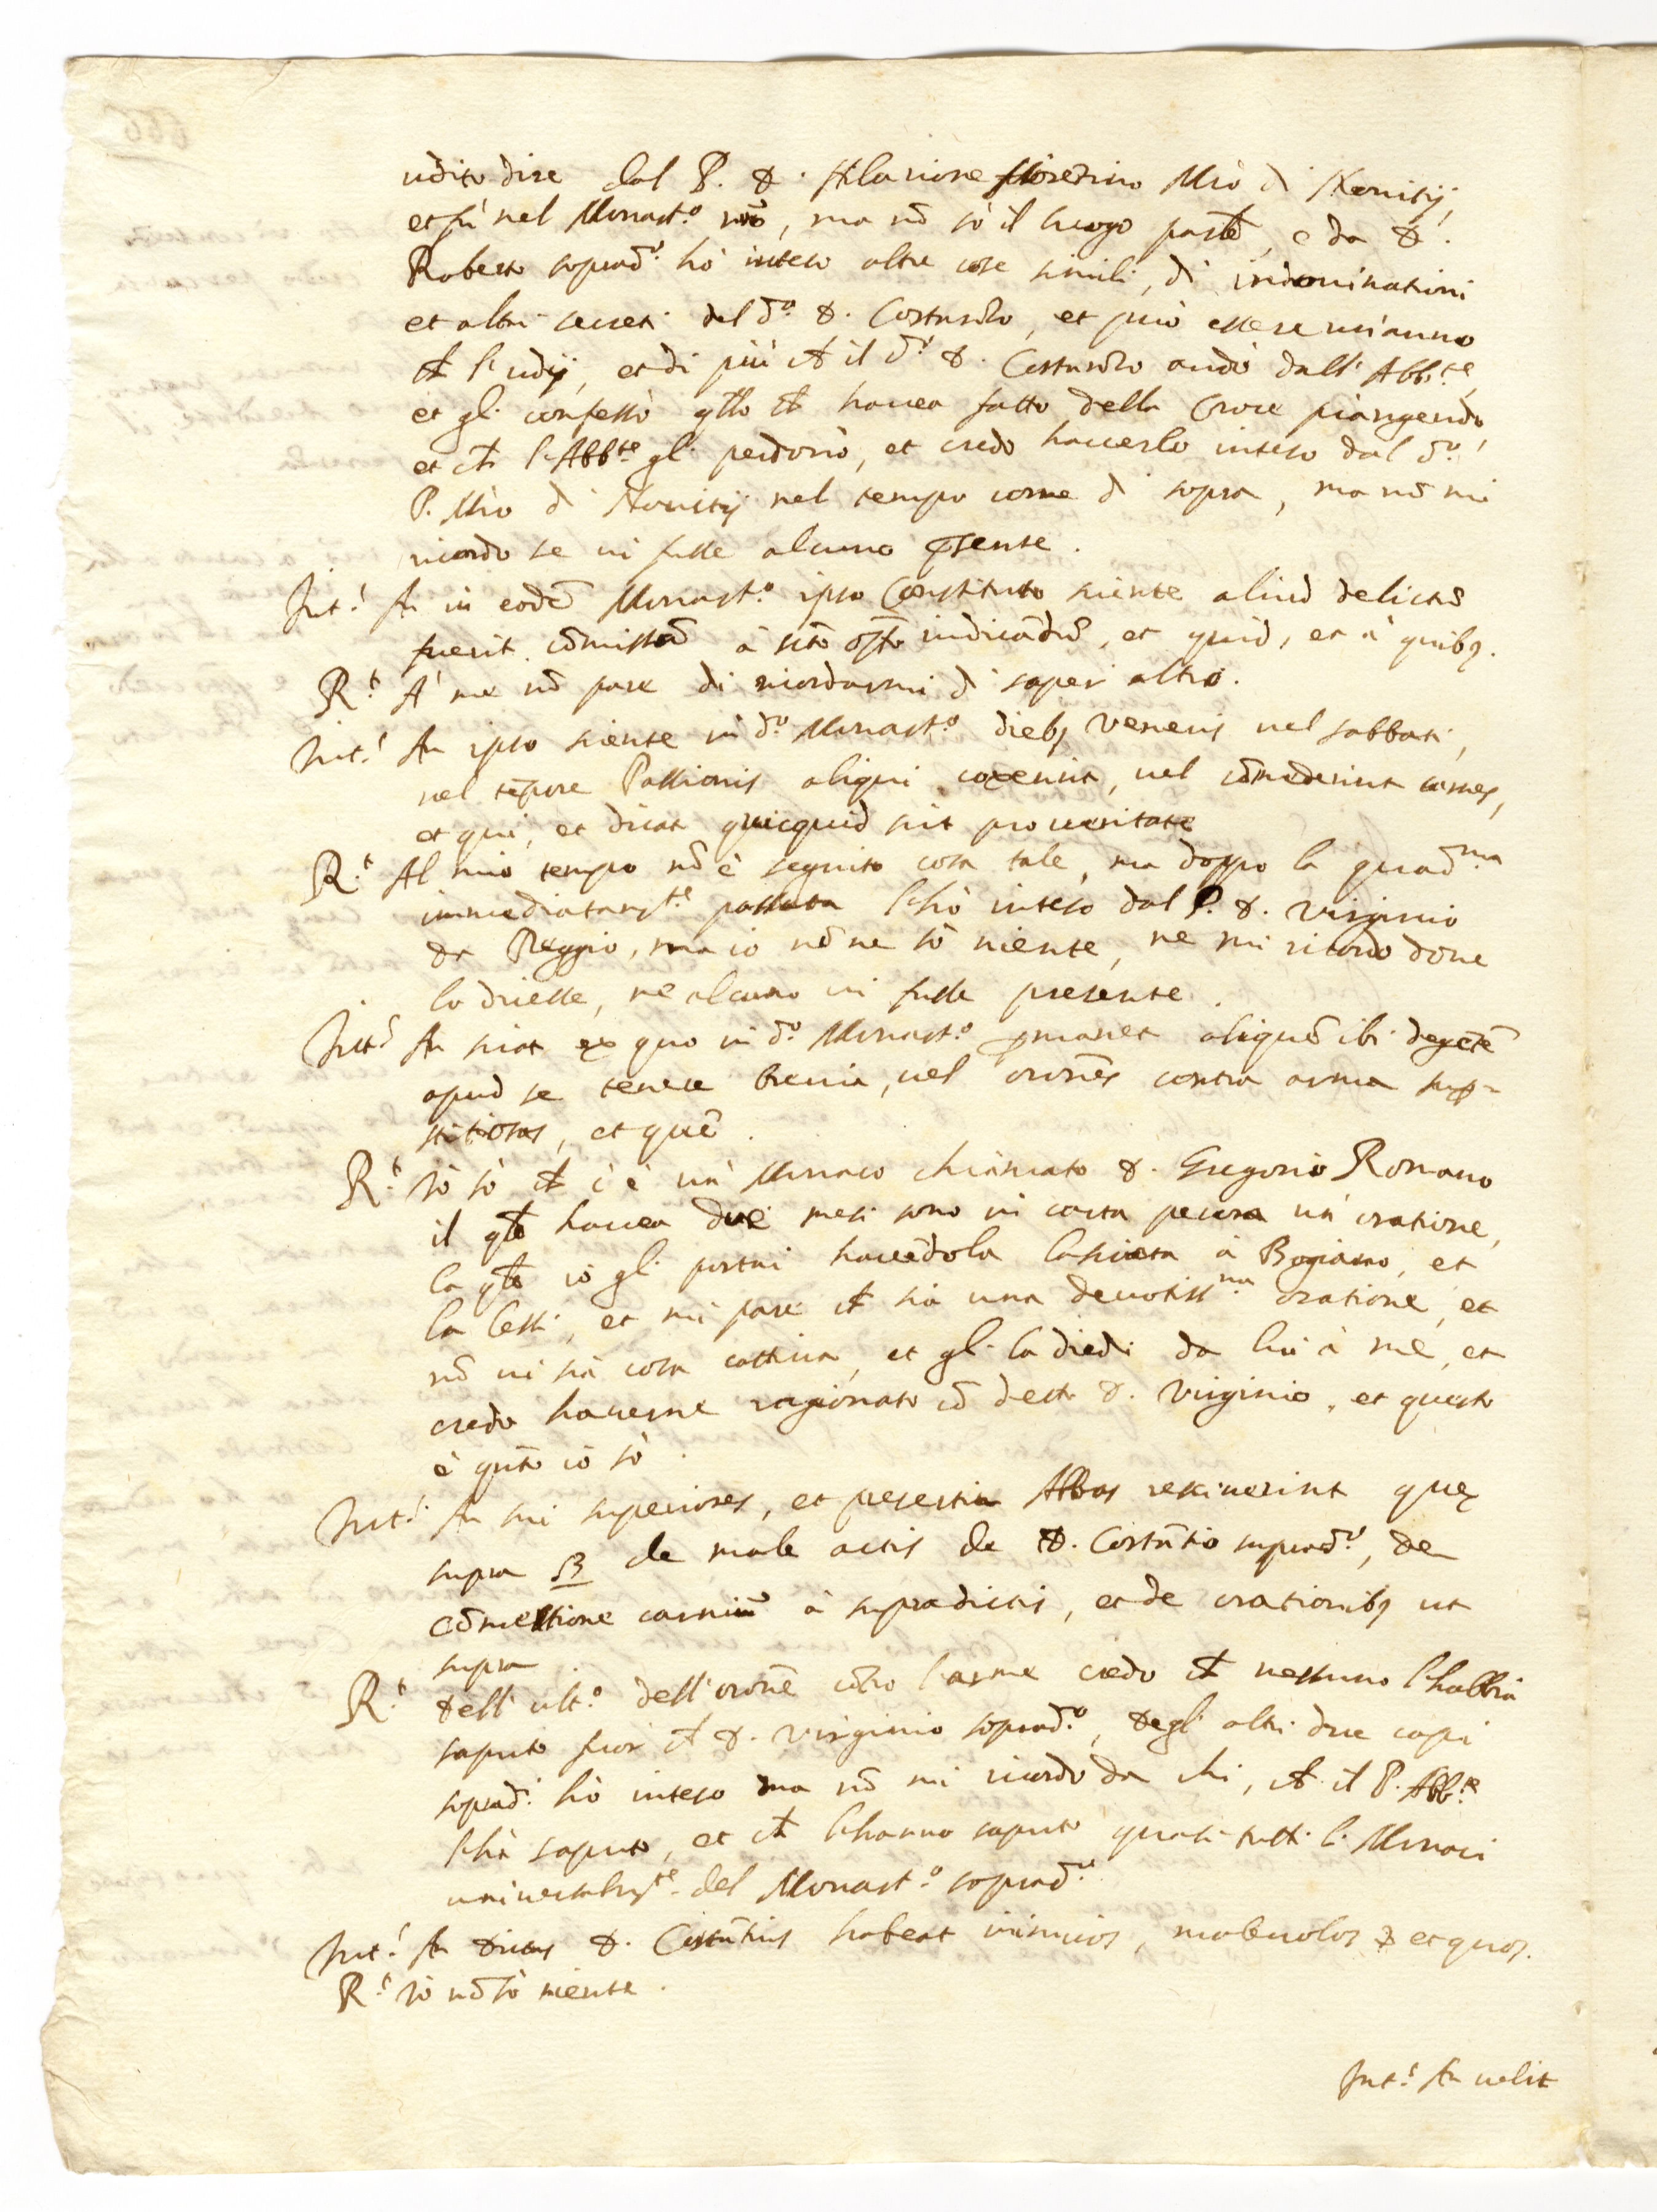 udito dire dal P. D. Hilarione fiorentino Mrō di Nouitij,
et fù nel Monast.º nrō, ma nō sò il luogo partē, e da D.
Roberto soprad.º hò inteso altre cose simili, di indouinationi
et altri secreti del d.º D. Costantio, et può essere un'anno
ch̄ l'udij, et di più ch̄ il d.º D. Costantio andò dall'Abb.te,
et gli confessò q̄llo ch̄ hauea fatto della Croce piangendo,
et ch̄ l'Abb.te gli perdonò, et credo hauerlo inteso dal d.º
P. Mrō di Nouitij nel tempo come di sopra, ma nō mi
ricordo se ui fusse alcuno p̄sente.
Int.s An in eodē Monast.º ipso Constituto sciente aliud delictū
fuerit cōmissū à sctō offō iudicādū, et quid, et à quibq.
R.t A' me nō pare di ricordarmi di saper altro.
Int.s An ipso sciente in d.º Monast.º diebq Veneris uel sabbati,
uel tēpore Passionis aliqui coxerint, uel cōmederint carnes,
et qui, et dicat quicquid sit pro ueritate
R.t Al mio tempo nō è seguito cosa tale, ma doppo la quad.ma
immediatam.te passata l'hò inteso dal P. D. Virginio
da Reggio, ma io nō ne sò niente, ne mi ricordo doue
lo dicesse, ne alcuno ui fusse presente.
Int.s An sciat ex quo in d.º Monast.º p̄manet aliquē ibi degētē
apud se tenere breuia, uel orōnes contra arma sup-
stitiosas, et quē.
R.t Io sò ch̄ c'è un Monaco chiamato D. Gregorio Romano
il q̄le hauea due mesi sono in carta pecora un'oratione,
la q̄le io gli portai hauēdola lasciata à Bogiano, et
la lessi, et mi pare ch̄ sia una deuotiss.ma oratione, et
nō ui sia cosa cattiua, et gli la diedi da lui à me, et
credo hauerne ragionato cō detto D. Virginio, et questo
è quāto io sò.
Int.s An sui superiores, et presertim Abbas resciuerint quę
supra ꝶ de male actis de D. Costātio suprad.º, de
cōmestione carniū à supradictis, et de orationibq ut
supra
R.t Dell'ult.º dell'orōne cōtro l'arme credo ch̄ nessuno l'habbia
saputo fuor ch̄ D. Virginio soprad.º, degl'altri due capi
soprad.i hò inteso ma nō mi ricordo da chi, ch̄ il P. Abb.te
l'hà saputo, et ch̄ l'hanno saputo quasi tutti li Monaci
uniuersalm.te del Monast.º soprad.º
Int.s An dictus D. Costātius habeat inimicos, maleuolos et quos.
R.t Io nō sò niente.
Int.s An uelit